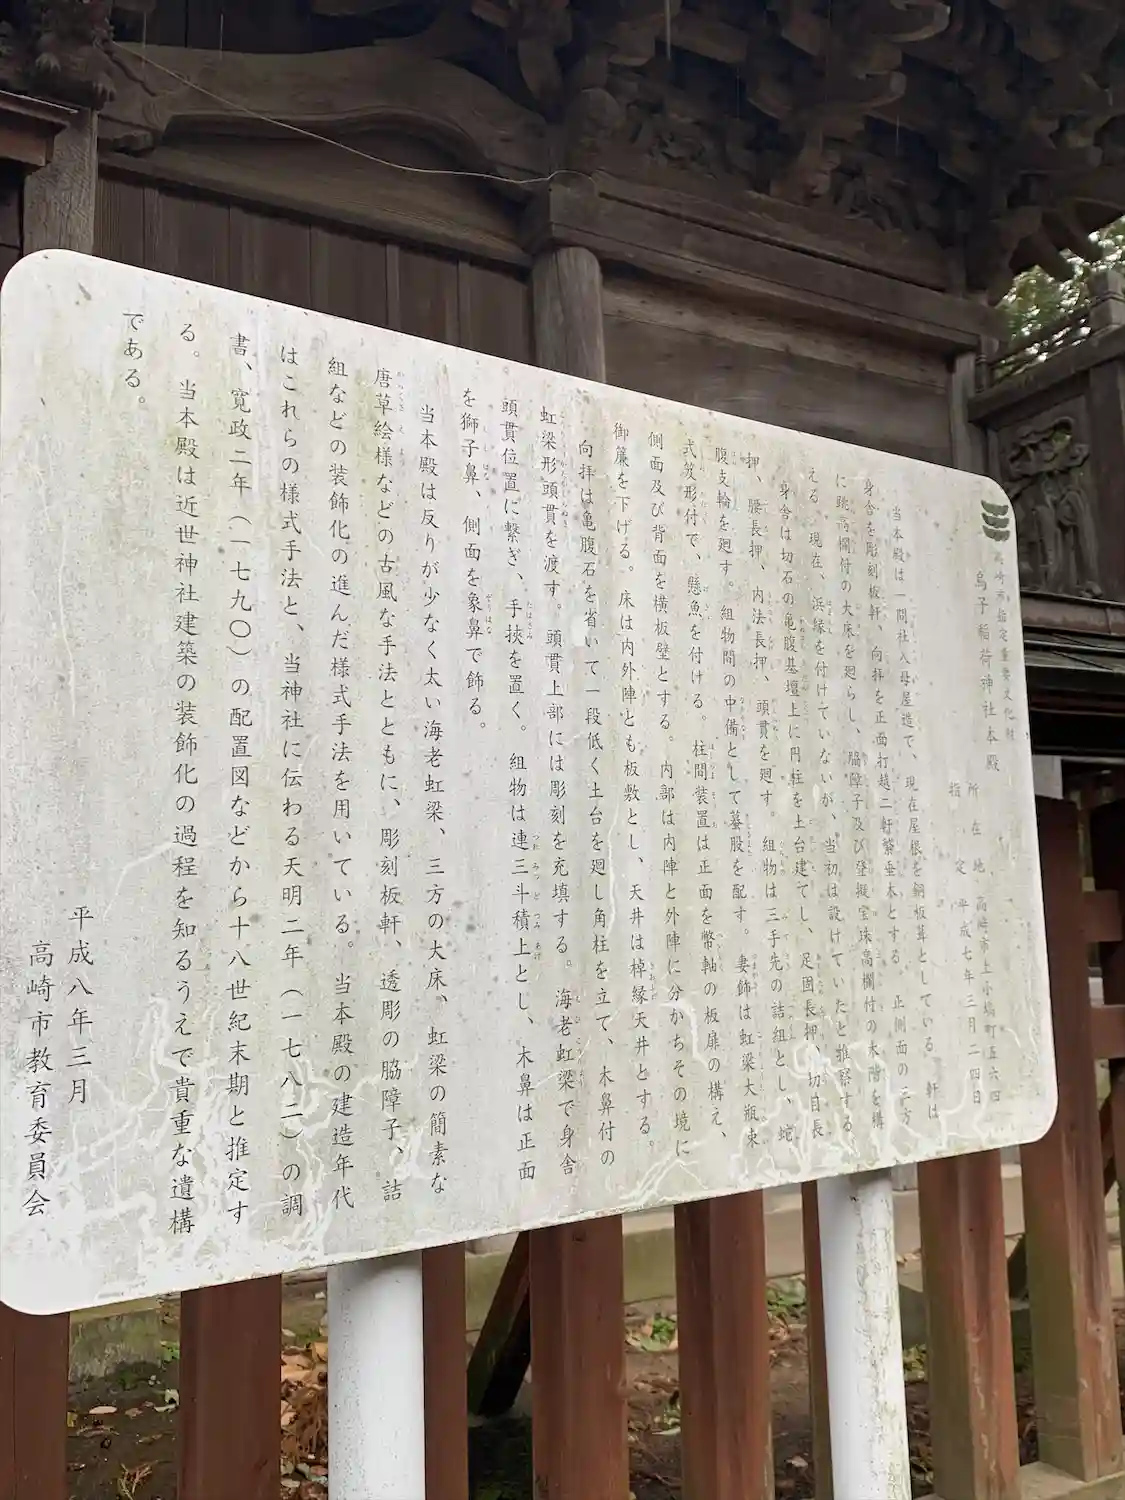 高崎市指定重要文化財
烏子稲荷神社本殿
所在地 高崎市上小塙町五六四
指定 平成七年三月二四日
当本殿は一間社入母屋造で、現在屋根を銅板葺としている。軒は
身舎を彫刻板軒、向拝を正面打越二軒繁垂木とする。正側面の三方
に跳高欄付の大床を廻らし、脇障子及び登擬宝珠高欄付の木階を構
える。現在、浜縁を付けていないが、当初は設けていたと推察する。
身舎は切石の亀腹基壇上に円柱を土台建てし、足固長押、切目長
押、腰長押、内法長押、頭貫を廻す。組物は三手先の詰組とし、蛇
腹支輪を廻す。組物間の中備として蟇股を配す。妻飾は虹梁大瓶束
式笈形付で、懸魚を付ける。柱間装置は正面を幣軸の板扉の構え、
側面及び背面を横板壁とする。内部は内陣と外陣に分かちその境に
御簾を下げる。床は内外陣とも板敷とし、天井は棹縁天井とする。
向拝は亀腹石を省いて一段低く土台を廻し角柱を立て、木鼻付の
虹梁形頭貫を渡す。頭貫上部には彫刻を充填する。海老虹梁で身舎
頭貫位置に繋ぎ、手挾を置く。組物は連三斗積上とし、木鼻は正面
を獅子鼻、側面を象鼻で飾る。
当本殿は反りが少なく太い海老虹梁、三方の大床、虹梁の簡素な
唐草絵様などの古風な手法とともに、彫刻板軒、透彫の脇障子、詰
組などの装飾化の進んだ様式手法を用いている。当本殿の建造年代
はこれらの様式手法と、当神社に伝わる天明二年（一七八二）の調
書、寛政二年（一七九〇）の配置図などから十八世紀末期と推定す
る。当本殿は近世神社建築の装飾化の過程を知るうえで貴重な遺構
である。
平成八年三月
高崎市教育委員会